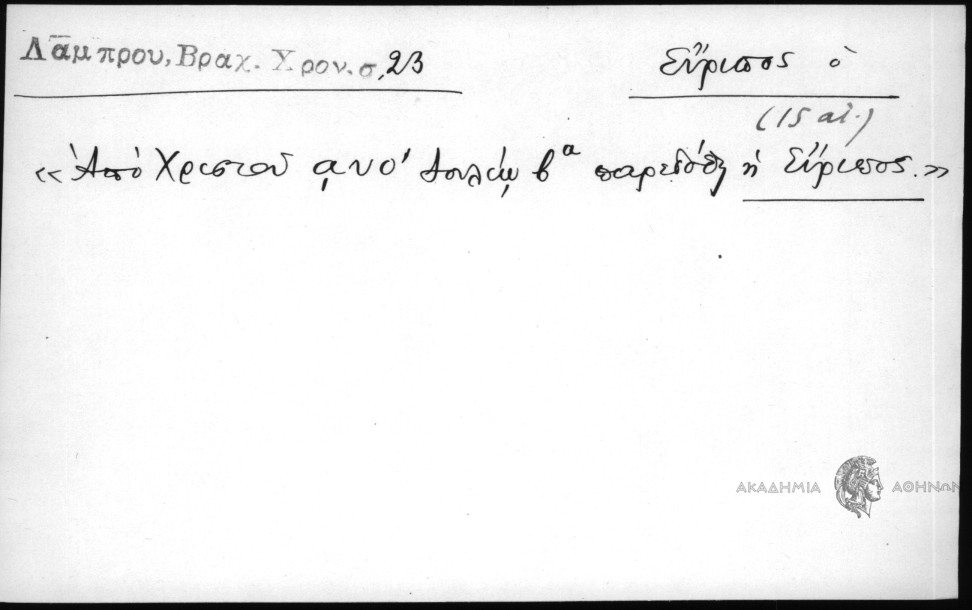 Λάμπρου, Βραχ. Χρον. σ. 23
Εὔριπος ὁ
(15 αἰ.)
«Ἀπὸ Χριστοῦ ͵ανο' Ἰουλίῳ βᵃ παρεδόθη ἡ Εὔριπος.»
ΑΚΑΔΗΜΙΑ ΑΘΗΝΩΝ